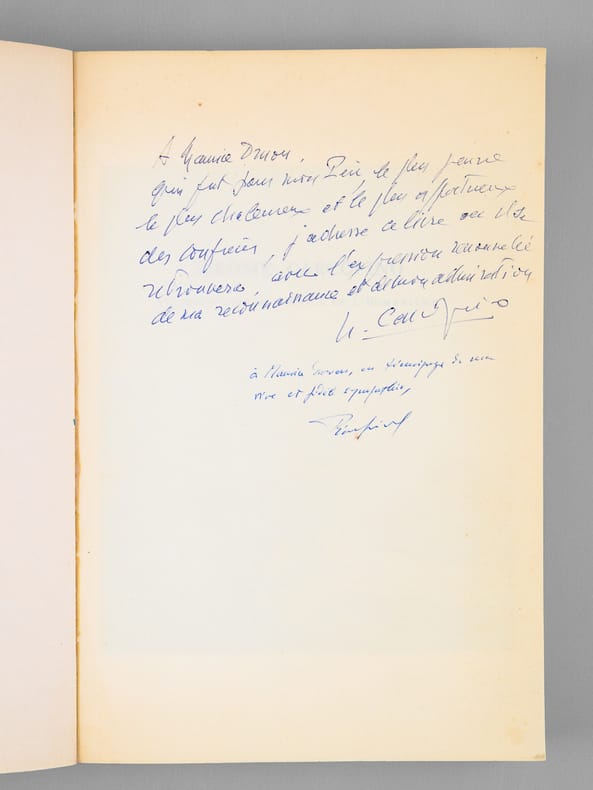 A Maurice Druon,
qui fut pour mon Père le plus jeune
le plus chaleureux et le plus affectueux
des confrères, j'adresse ce livre où il se
retrouvera, avec l'expression renouvelée
de ma reconnaissance et de mon admiration
à Maurice Druon, en témoignage de ma
vive et fidèle sympathie,